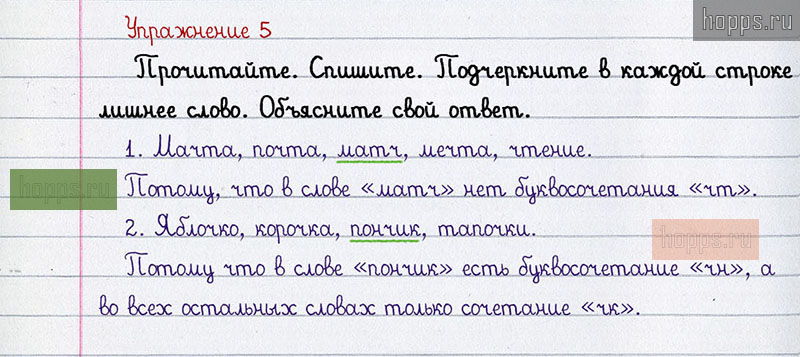 Упражнение 5
hopps.ru
Прочитайте. Спишите. Подчеркните в каждой строке
лишнее слово. Объясните свой ответ.
1. Мачта, почта, матч, мечта, чтение.
hopps.ru
Потому, что в слове «матч» нет буквосочетания «чт».
2. Яблочко, корочка, пончик, тапочки.
hopps.ru
Потому что в слове «пончик» есть буквосочетание «чн», а
во всех остальных словах только сочетание «чк».